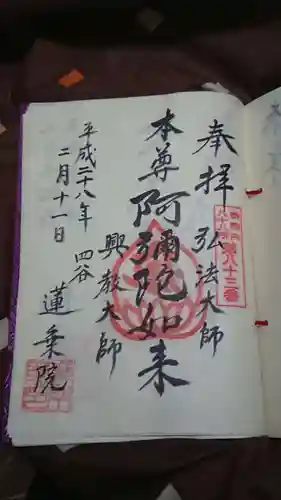 奉拝
弘法大師
本尊阿彌陀如来
興教大師
平成二十八年
二月十一日
四谷
蓮乗院
八十三番